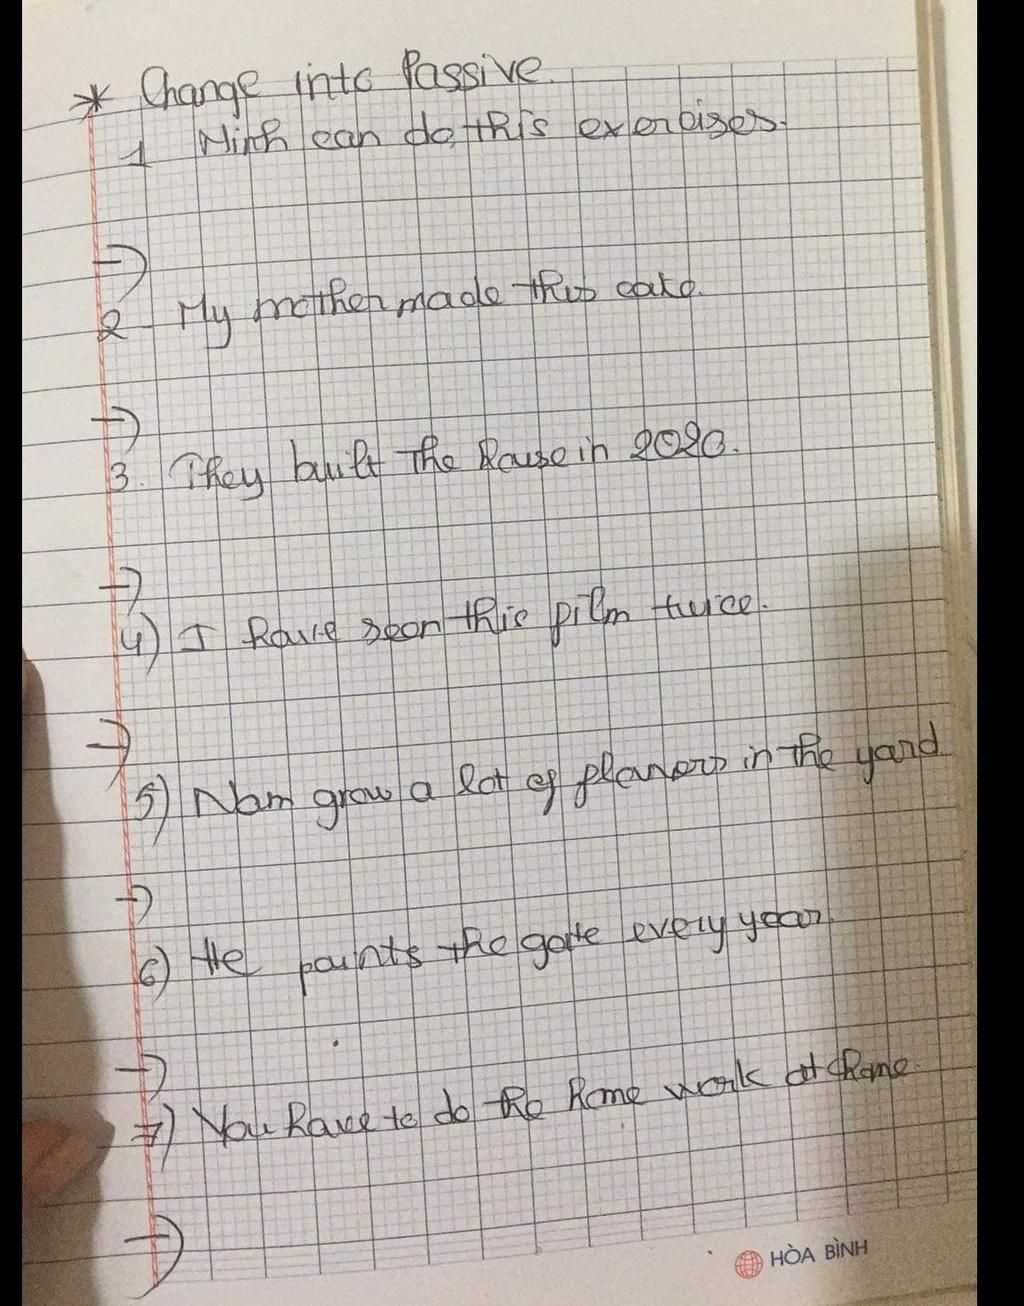 * Change into Passive.
1 Ninh can do this exercises.
→
2 My mother made this cake.
→
3. They built the house in 2020.
→
4) I have seen this film twice.
→
5) Nam grow a lot of flowers in the yard
→
6) He paints the gate every year.
→
7) You have to do the home work at home.
→
HÒA BÌNH